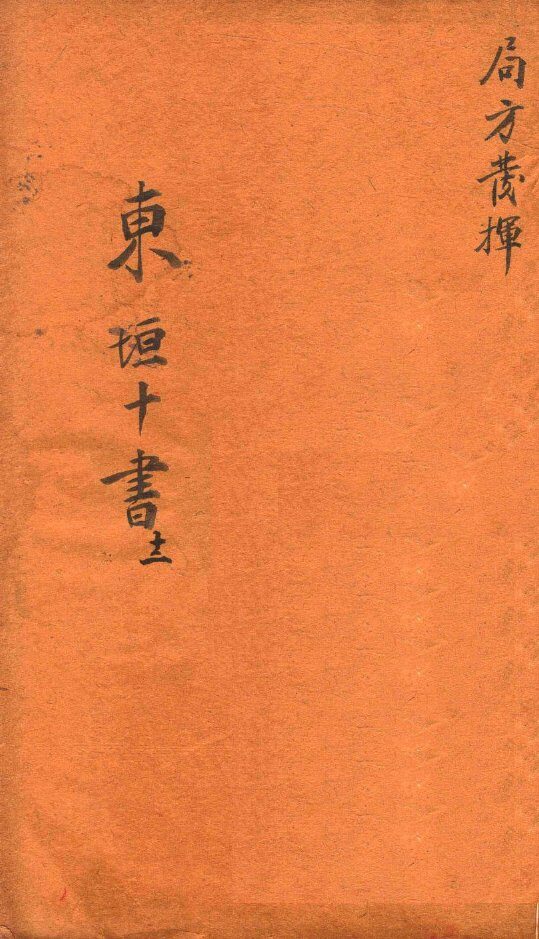 局方發揮
東垣十書 十二